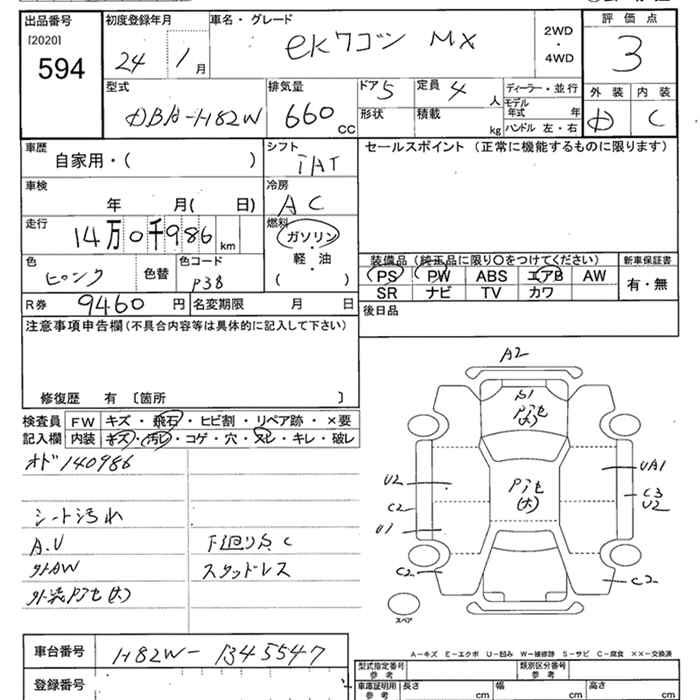 出品番号 初度登録年月 車名・グレード 評価点
[2020] 594 24 1月 eKワゴン MX 2WD・4WD 3
型式 排気量 ドア 5 定員 4人 ディーラー・並行 外装 内装
DBA-H82W 660CC 形状 積載 kg モデル年式 年 ハンドル 左・右 D C
車歴 シフト セールスポイント (正常に機能するものに限ります)
自家用・( ) IAT
車検 冷房
年 月( 日) AC
走行 燃料
14万0千986km ガソリン・軽・油 ( )
色 色替 色コード 装備品 (純正品に限り○をつけてください) 新車保証書
ピンク P38 PS PW ABS エアB AW 有・無
SR ナビ TV カワ
R券 9460円 名変期限 月 日 後日品
注意事項申告欄(不具合内容等は具体的に記入して下さい)
修復歴 有 〔箇所 〕
検査員記入欄 FW キズ・飛石・ヒビ割・リペア跡・×要
内装 キズ・汚レ・コゲ・穴・スレ・キレ・破レ
オド140986
シート汚れ
A.U 下回りS C
外AW スタッドレス
外装Pjセ(大)
A2
S1
Pjセ
(大)
U2 UA1
Pjセ
(大)
C2 C3
U2
U1
C2 C2
スペア
A-キズ E-エクボ U-凹み W-補修跡 S-サビ C-腐食 ××-交換済
車台番号 H82W-1345547
登録番号
型式指定番号 参考 類別区分番号 参考
車庫証明用 参考 長さ cm 幅 cm 高さ cm